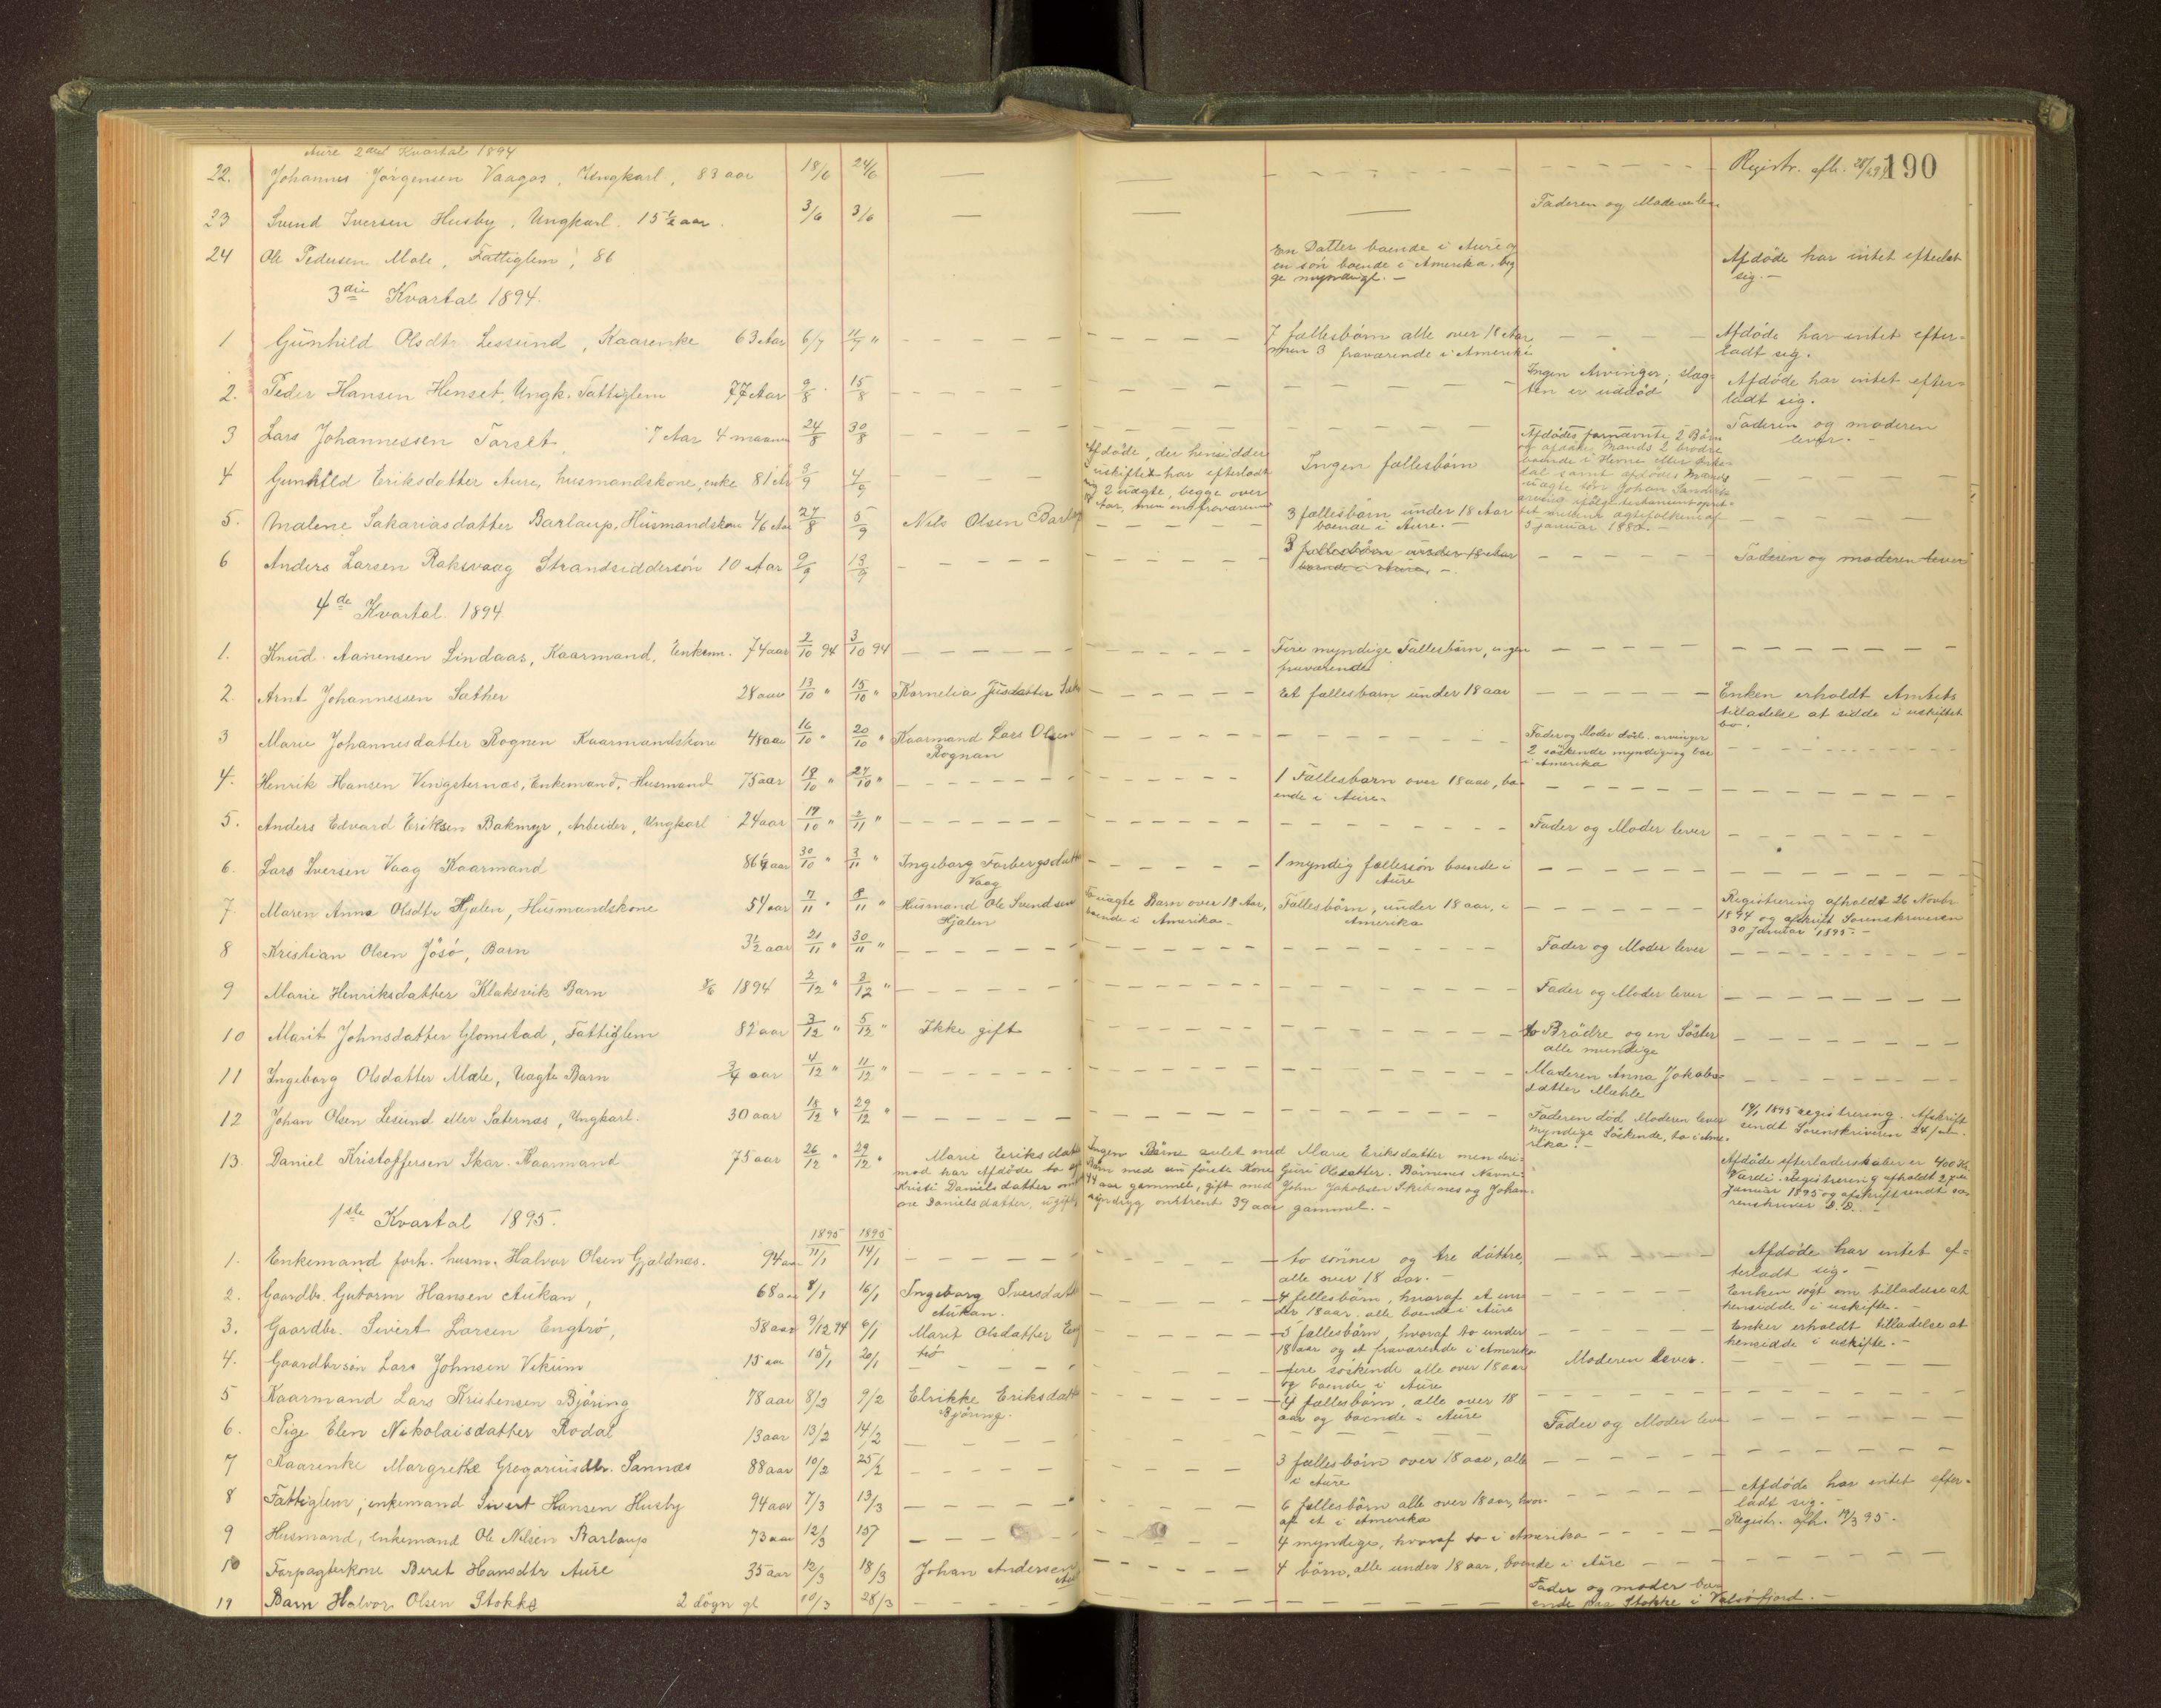 Aure 2det Kvartal 1894
190
22. Johannes Jörgensen Vaagos, Ungkarl, 83 aar 18/6 24/6 — — Registr. afh. 28/6 94
23 Svend Iversen Husby, Ungkarl. 15 1/2 aar. 3/6 3/6 — — — Faderen og Moderen lever
24 Ole Pedersen Mole, Fattiglem, 86 En Datter boende i Aure og
en sön boende i Amerika, beg
ge myndige. — Afdöde har intet efterladt
sig. —
3die Kvartal 1894.
1 Gunhild Olsdtr Lessund, Kaarenke 63 Aar 6/7 11/7 " 7 fællesbörn alle over 18 Aar
men 3 fraværende i Amerika Afdöde har intet efter-
ladt sig.
2. Peder Hansen Henset, Ungk. Fattiglem 77 Aar 9/8 15/8 Ingen Arvinger, slæg-
ten er uddöd Afdöde har intet efter-
ladt sig.
3 Lars Johannessen Torset, 7 Aar 4 maaner 24/8 30/8 Faderen og moderen
lever. —
4 Gunhild Eriksdatter Aure, husmandskone, enke 81 Ar 3/9 4/9 Afdöde, der hensidder
i uskiftet har efterladt
sig 2 uægte, begge over
18 Aar, men en fraværende Ingen fællesbörn Afdödes 2 Börn
og afdödes Mands 2 brödre
boende i Hevne eller Örke-
dal samt afdödes Mands
uægte sön Johan Sandvik
arving ifölge testament opret-
tet mellem ægtefolkene af
5 januar 1882. —
5. Malene Sakariasdatter Barlaup, Husmandskone 46 Aar 27/8 5/9 Nels Olsen Barlaup 3 fællesbörn under 18 Aar
boende i Aure. —
6 Anders Larsen Roksvaag Strandsiddersön 10 Aar 9/9 13/9 3 fællesbörn under 18 Aar
boende i Aure. — Faderen og moderen lever
4de Kvartal 1894
1. Knud Aanensen Lindaas, Kaarmand, Enkem. 74 aar 2/10 94 3/10 94 Fire myndige Fællesbörn, ingen
fraværende
2. Arnt Johannessen Sæther 28 aar 13/10 " 15/10 " Kornelia Et fællesbarn under 18 aar Enken erholdt Amtets
tilladelse at sidde i uskiftet
bo.
3 Marie Johannesdatter Rognen Kaarmandskone 48 aar 16/10 " 20/10 " Kaarmand Lars Olsen
Rognan Fader og Moder död. arvinger
2 söskende myndige og boe
i Amerika
4. Henrik Hansen Vingsternæs, Enkemand, Husmand 75 aar 19/10 " 27/10 " 1 Fællesbarn over 18 aar, bo-
ende i Aure.
5. Anders Edvard Eriksen Bakmyr, Arbeider, Ungkarl 24 aar 19/10 " 2/11 " Fader og Moder lever
6. Lars Iversen Vaag Kaarmand 86 1/4 aar 30/10 " 3/11 " Ingeborg Torbergsdatter
Vaag 1 myndig fællessön boende i
Aure
7. Maren Anna Olsdtr Hjalen, Husmandskone 54 aar 7/11 " 8/11 " Husmand Ole Svendsen
Hjalen To uægte Barn over 18 Aar,
boende i Amerika — Fællesbörn, under 18 aar, i
Amerika Registrering afholdt 26 Novbr.
1894 og afskrift Sorenskriveren
30 Januar 1895. —
8 Kristian Olsen Jösö, Barn 3 1/2 aar 21/11 " 30/11 " Fader og Moder lever
9 Marie Henriksdatter Klaksvik Barn 8/6 1894 2/12 " 3/12 " Fader og Moder lever
10 Marit Johnsdatter Glomstad, Fattiglem 82 aar 3/12 " 5/12 " Ikke gift to Brödre og en Söster
alle mundige
11 Ingeborg Olsdatter Mæle, Uægte Barn 3/4 aar 4/12 " 11/12 " Moderen Anna Jakobs-
datter Mæhle
12 Johan Olsen Lesund eller Sæternæs, Ungkarl. 30 aar 18/12 " 29/12 " Faderen död Moderen lever
Myndige Söskende, to i Ame-
rika. — 19/1 1895 registrering. Afskrift
sendt Sorenskriveren 24/
13. Daniel Kristoffersen Skar. Kaarmand 75 aar 26/12 " 29/12 " Marie Eriksdatter Ingen Börn avlet med Marie Eriksdatter men deri-
mod har Afdöde to Börn med sin förste Kone Guri Olsdatter. Börnenes Navne:
Kristi Danielsdatter 44 aar gammel, gift med John Jakobsen Skibnes og Johan-
ne Danielsdatter, ugift, myndig omtrent 39 aar gammel. — Afdöde efterladenskaber er 400 Kr.
Værdi. Registrering afholdt 2
Januar 1895 og afskrift sendt so-
renskriver D.D. —
1ste Kvartal 1895.
1. Enkemand forh. husm. Halvor Olsen Gjeldnæs. 94 aar 1895 11/1 1895 14/1 to sönner og tre döttre,
alle over 18 aar. — Afdöde har intet ef-
terladt sig. —
2. Gaardbr. Gutorm Hansen Aukan, 68 aar 8/1 16/1 Ingeborg Iversdatter
Aukan. 4 fellesbörn, hvoraf et un-
der 18 aar, alle boende i Aure Enken sögt om tilladelse at
hensidde i uskifte. —
3. Gaardbr. Sivert Larsen Engtrö, 58 aar 9/12 94 6/1 Marit Olsdatter Eng
trö 5 fællesbörn, hvoraf to under
18 aar og et fraværende i Amerika Enken erholdt tilladelse at
hensidde i uskifte. —
4. Gaardbrsön Lars Johnsen Vikum 15 aar 15/1 20/1 fire söskende alle over 18 aar
og boende i Aure Moderen lever.
5 Kaarmand Lars Kristensen Björing 78 aar 8/2 9/2 Elrikke Eriksdatter
Björing. 4 fællesbörn, alle over 18
aar og boende i Aure
6. Pige Elen Nikolaisdatter Rodal 13 aar 13/2 14/2 Fader og Moder lever
7 Kaarenke Margrethe Gregoriusdtr. Sannæs 88 aar 10/2 25/2 3 fællesbörn over 18 aar, alle
i Aure
8 Fattiglem, enkemand Sivert Hansen Husby 94 aar 7/3 13/3 6 fællesbörn alle over 18 aar, hvor-
af et i Amerika Afdöde har intet efter-
ladt sig. —
9 Husmand, enkemand Ole Nilsen Barlaup 73 aar 12/3 4 myndige, hvoraf to i Amerika Registr. afh. 19/3 95.
10 Forpagterkone Beret Hansdtr Aure 35 aar 12/3 18/3 Johan Andersen
Aure 4 börn, alle under 18 aar, boende i Aure
11 Barn Halvor Olsen Stokke 2 dögn gl 10/3 28/3 Fader og moder bo-
ende paa Stokke i Valsöfjord. —